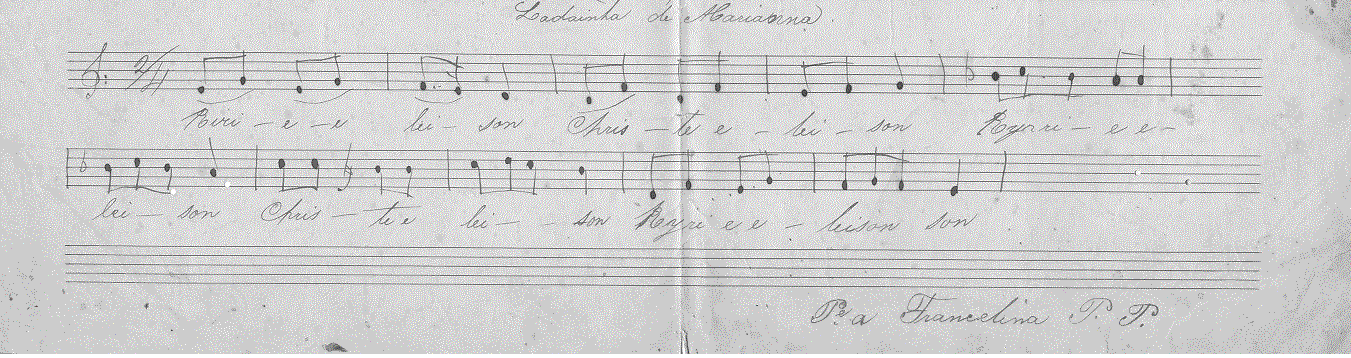 Ladainha de Marianna.
2/4
Kiri - e - e lei - son Chris - te e - lei - son Kyrri - e e -
lei - son Chris - te e lei - - son Kyri e e - leison son
Pª a Francelina P. P.